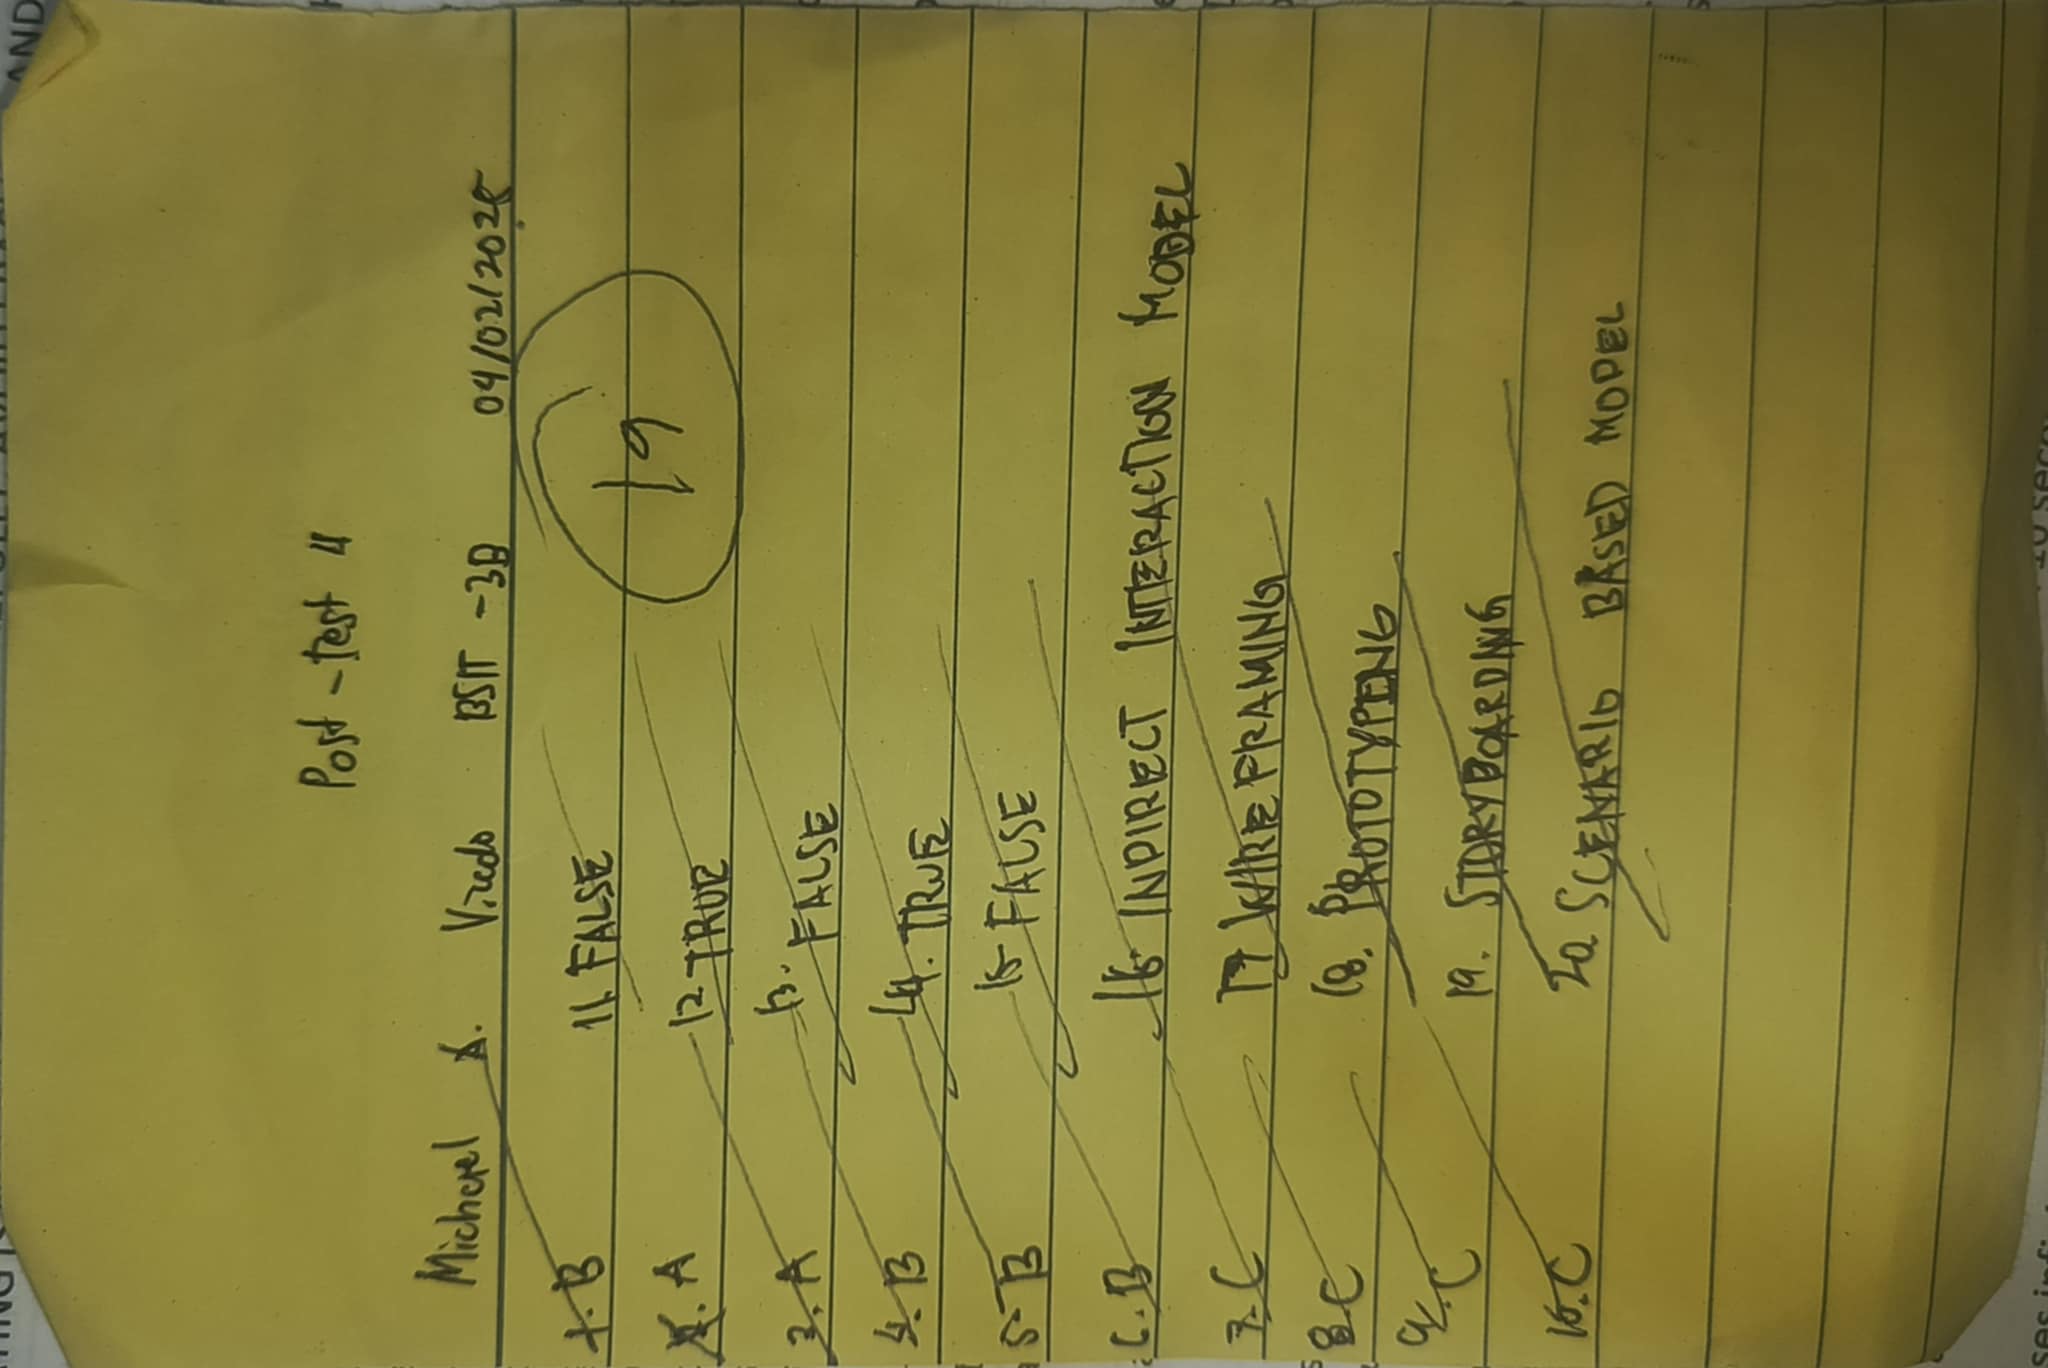 Post-test 4
Michael A. Viredo BSIT-3B 04/02/2025
1. B
2. A
3. A
4. B
5. B
6. B
7. C
8. C
9. C
10. C
11. FALSE
12 TRUE
13. FALSE
14. TRUE
15 FALSE
16 INDIRECT INTERACTION MODEL
17 WIRE FRAMING
18. PROTOTYPING
19. STORYBOARDING
20. SCENARIO BASED MODEL
19
AND